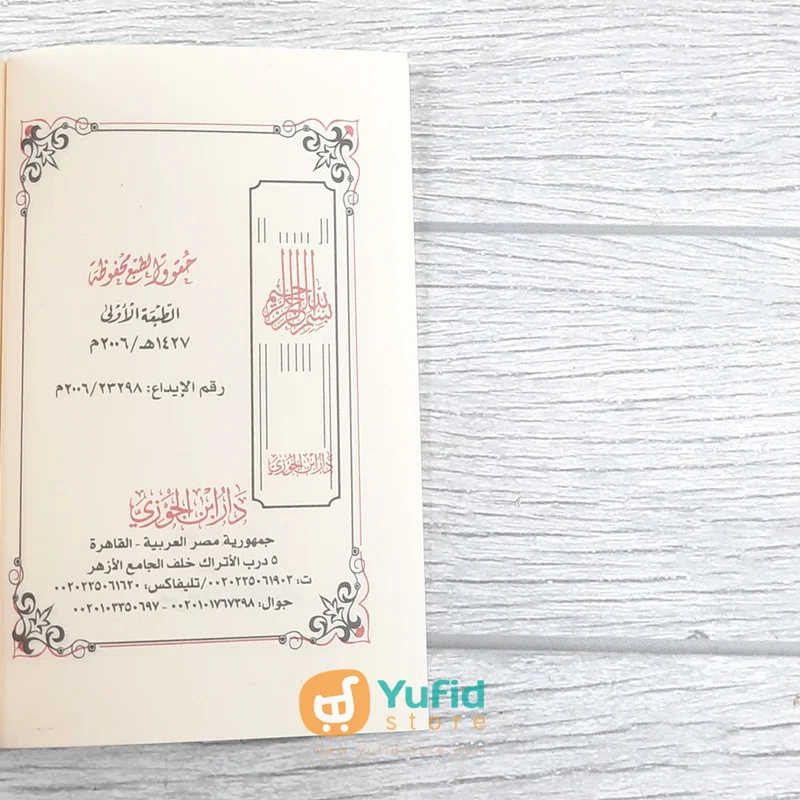 حقوق الطبع محفوظة
الطبعة الأولى
١٤٢٧هـ/٢٠٠٦م
رقم الإيداع: ٢٠٠٦/٢٣٢٩٨م
بسم الله الرحمن الرحيم
دار ابن الجوزي
دَارُ ابْنِ الْجَوْزِيِّ
جمهورية مصر العربية - القاهرة
٥ درب الأتراك خلف الجامع الأزهر
ت: ٠٠٢٠٢٢٥٠٦١٩٠٣/تليفاكس: ٠٠٢٠٢٣٥٠٦١٦٢٠
جوال: ٠٠٢٠١٠١٧٦٧٣٩٨ - ٠٠٢٠١٠٣٣٥٠٦٩٧
Yufid
store